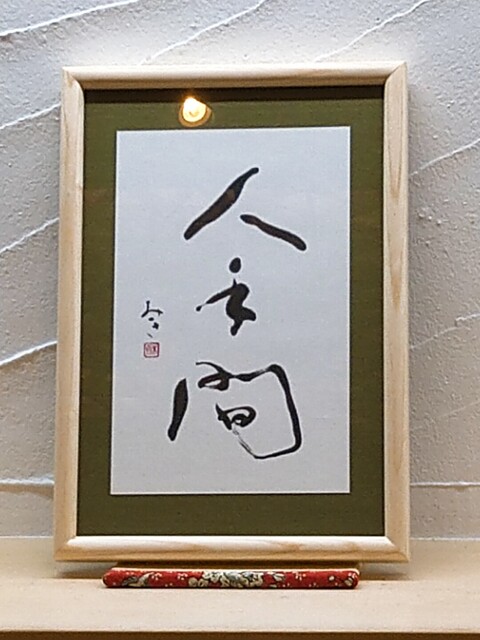 人
手
間